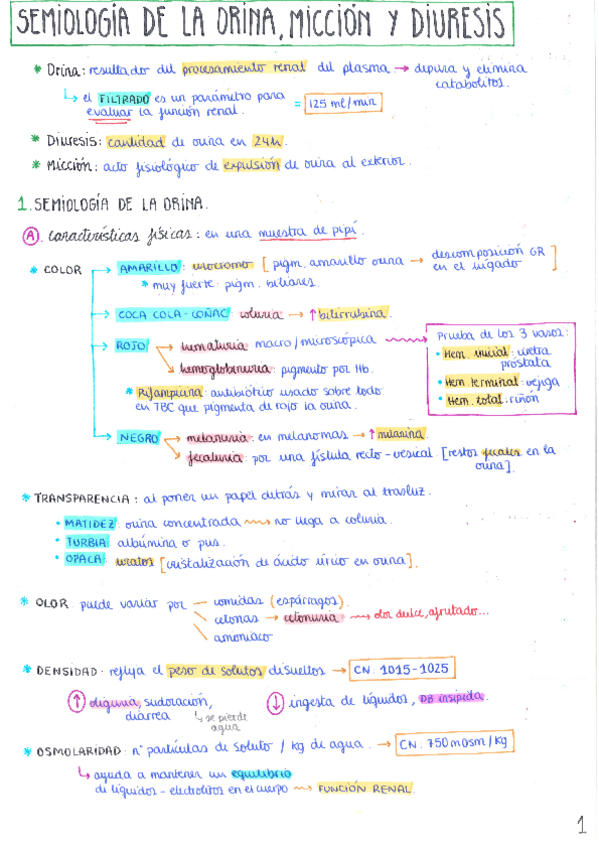 SEMIOLOGÍA DE LA ORINA, MICCIÓN Y DIURESIS
* Orina: resultado del procesamiento renal del plasma → depura y elimina
catabolitos.
↳ el FILTRADO es un parámetro para = 125 ml/min
evaluar la función renal.
* Diuresis: cantidad de orina en 24h.
* Micción: acto fisiológico de expulsión de orina al exterior.
1. SEMIOLOGÍA DE LA ORINA.
A. características físicas: en una muestra de pipí.
* COLOR → AMARILLO: urocromo [pigm. amarillo orina → descomposición GR
en el hígado]
* muy fuerte: pigm. biliares.
→ COCA COLA-COÑAC: coluria → ↑ bilirrubina.
→ ROJO → hematuria macro/microscópica
→ hemoglobinuria: pigmento por Hb.
Prueba de los 3 vasos:
• Hem. inicial: uretra
próstata
• Hem terminal: vejiga
• Hem. total: riñón
* Rifampicina: antibiótico usado sobre todo
en TBC que pigmenta de rojo la orina.
→ NEGRO → melanuria: en melanomas → ↑ melanina.
→ fecaluria: por una fístula recto-vesical. [restos fecales en la
orina].
* TRANSPARENCIA: al poner un papel detrás y mirar al trasluz.
• MATIDEZ: orina concentrada → no llega a coluria.
• TURBIA: albúmina o pus.
• OPACA: uratos [cristalización de ácido úrico en orina].
* OLOR: puede variar por — comidas (espárragos).
cetonas → cetonuria → olor dulce, afrutado...
amoniaco
* DENSIDAD: refleja el peso de solutos disueltos → CN. 1015-1025
↑ oliguria, sudoración, ↓ ingesta de líquidos, DB insípida.
diarrea ↳ se pierde
agua
* OSMOLARIDAD: nº partículas de soluto / kg de agua. → CN. 750 mOsm/kg
↳ ayuda a mantener un equilibrio
de líquidos-electrolitos en el cuerpo → FUNCIÓN RENAL.
1